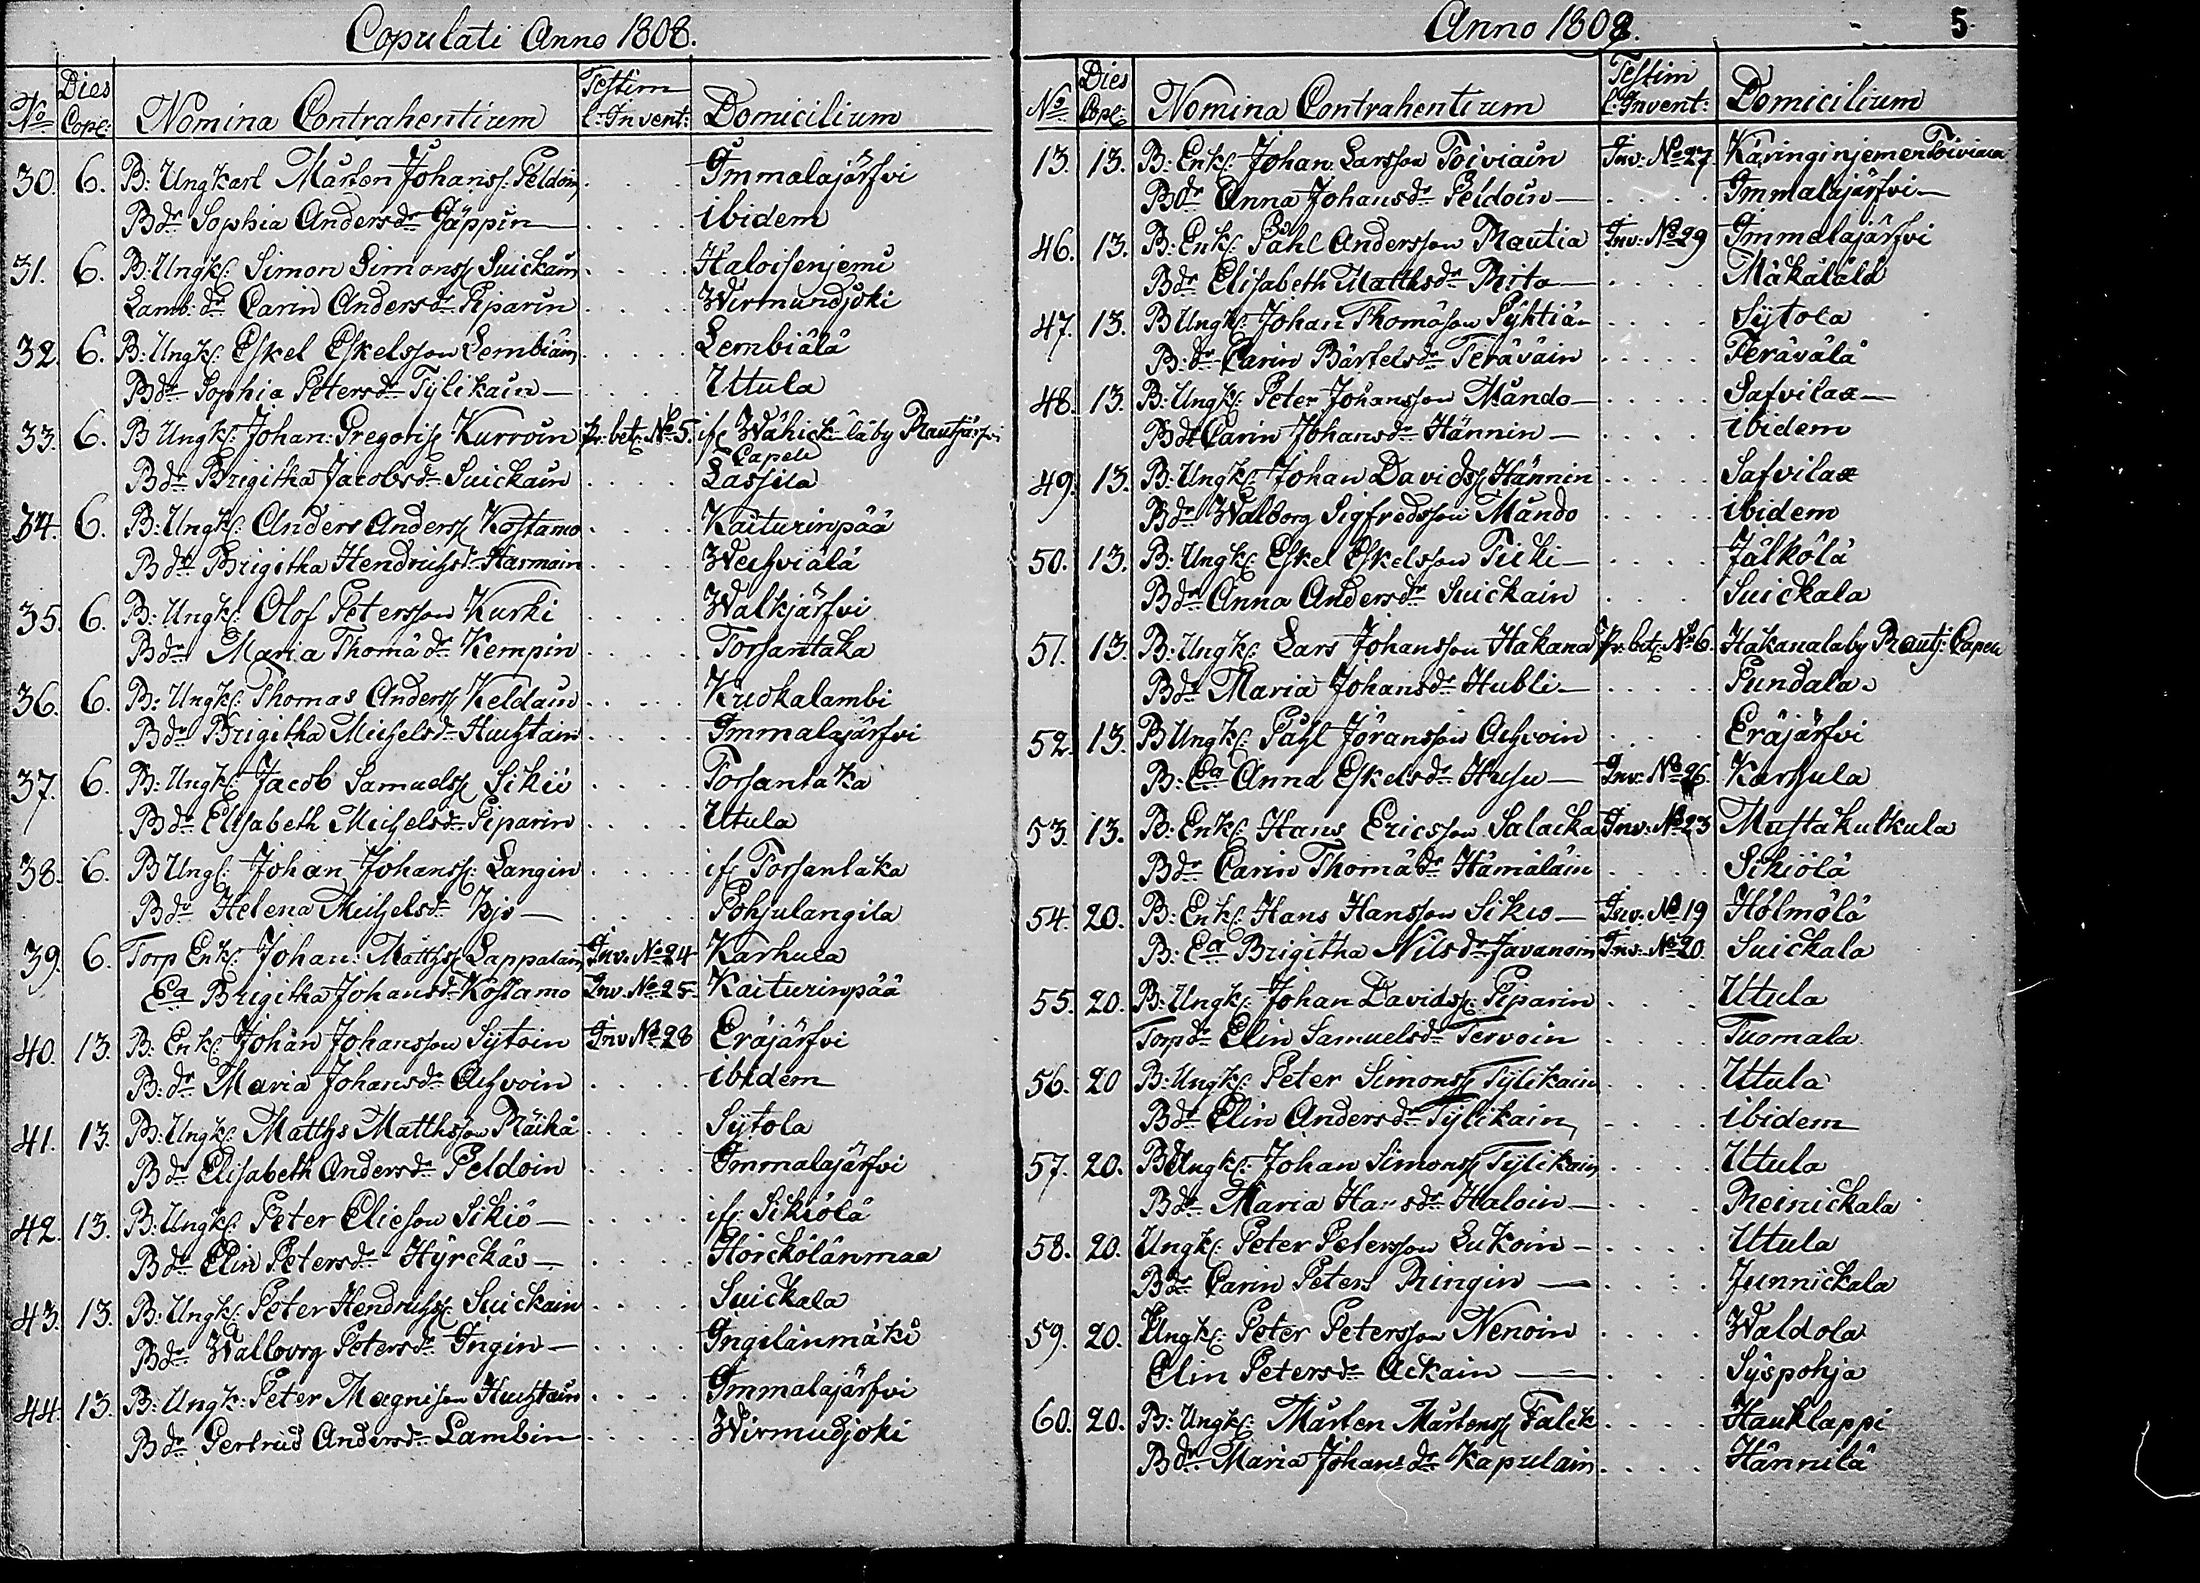 Copulati Anno 1808.
No Dies Copl: Nomina Contrahentium Testim l. Invent: Domicilium
30. 6. B: Ungkarl Mårten Johanss: Peldoin Immalajärfvi
Bdr Sophia Andersdr Jäppin ibidem
31. 6. B: Ungk: Simon Simonss Suickain Haloisenjemi
Lamb: dr Carin Andersdr Piparin Wirmundjoki
32. 6. B: Ungk: Eskel Eskelsson Lembiäin Lembiälä
Bdr Sophia Petersdr Tylikain Uttula
33. 6. B Ungk: Johan: Gregoris: Kurroin Pr: bet: No 5. if: Wähickäläby Rautjärfvi Capell
Bdr Brigitha Jacobsdr Suickain Lassila
34. 6. B: Ungk: Anders Anderss Kostamo Kaiturinpää
Bdr Brigitha Hendrichsdr Harmoin Wechviälä
35. 6. B: Ungk: Olof Petersson Kurki Walkjärfvi
Bdr Maria Thomädr Kempin Torsantaka
36. 6. B: Ungk: Thomas Anderss Keldain Kuokalambi
Bdr Brigitha Michelsdr Huchtain Immalajärfvi
37. 6. B: Ungk: Jacob Samuelss Sikiö Torsantaka
Bdr Elisabeth Michelsdr Piparin Utula
38. 6. B Ung: Johan Johanss: Langin if: Torsantaka
Bdr Helena Michelsdr Pohjulangila
39. 6. Torp Enk: Johan: Mattss Lappalain Inv. No 24 Karhula
Ea Brigitha Johansdr Kostamo Inv. No 25. Kaiturinpää
40. 13. B: Enk: Johan Johansson Sytoin Inv No 28 Eräjärfvi
B: dr Maria Johansdr Achvoin ibidem
41. 13. B: Ungk: Matths Matthsson Räikä Sytola
Bdr Elisabeth Andersdr Peldoin Immalajärfvi
42. 13. B: Ungk: Peter Elieson Sikiö if: Sikiölä
Bdr Elin Petersdr Hyrckäs Hörckölänmaa
43. 13. B: Ungk: Peter Hendrichss: Suickain Suickala
Bdr Wallborg Petersdr Ingin Ingilänmäki
44. 13. B: Ungk: Peter Magnison Huchtain Immalajärfvi
Bdr Gertrud Andersdr Lambin Wirmudjoki
Anno 1808. 5.
No Dies Copl: Nomina Contrahentium Testim l: Invent: Domicilium
13. 13. B: Enk: Johan Larsson Toiviain Inv: No 27. Käringinjemen Toiviaia
Bdr Anna Johansdr Peldoin Immalajärfvi
46. 13. B: Enk: Påhl Andersson Rautia Inv: No 29 Immalajärfvi
Bdr Elisabeth Matthsdr Rita Mäkälälä
47. 13. B Ungk: Johan Thomäson Pyhtiä Sytola
B: dr Carin Bärtelsdr Teräväin Terävälä
48. 13. B: Ungk: Peter Johansson Mändo Safvilax
Bdr Carin Johansdr Hännin ibidem
49. 13. B: Ungk: Johan Davidss Hännin Safvilax
Bdr Walborg Sigfredsson Mändo ibidem
50. 13. B: Ungk: Eskel Eskelsson Ticki Jälkölä
Bdr Anna Andersdr Suickain Suickala
51. 13. B: Ungk: Lars Johansson Hakana Pr: bet: No 6. Hakanalaby Rautj: Capell
Bdr Maria Johansdr Hubli Pundala
52. 13. B Ungk: Påhl Jöransson Achvoin Eräjärfvi
B: Ea Anna Eskelsdr Husu Inv: No 26. Karhula
53. 13. B: Enk: Hans Ericsson Salacka Inv: No 23 Mustakulkula
Bdr Carin Thomädr Hämäläin Sikiölä
54. 20. B: Enk: Hans Hansson Sikiö Inv: No 19 Hölmölä
B: Ea Brigitha Nilsdr Javanoin Inv: No 20. Suickala
55. 20. B: Ungk: Johan Davidss: Piparin Utula
Torpdr Elin Samuelsdr Tervoin Tuomala
56. 20 B: Ungk: Peter Simonss Tylikain Utula
Bdr Elin Andersdr Tylikain ibidem
57. 20. B Ungk: Johan Simonss Tylikain Utula
Bdr Maria Hansdr Haloin Reinickala
58. 20. Ungk: Peter Petersson Lukoin Utula
Bdr Carin Peters Ringin Junnickala
59. 20. Ungk: Peter Petersson Nenoin Waldola
Elin Petersdr Ackain Syspohja
60. 20. B: Ungk: Mårten Mårtenss Falck Hauklappi
Bdr Maria Johansdr Kapulain Hännilä